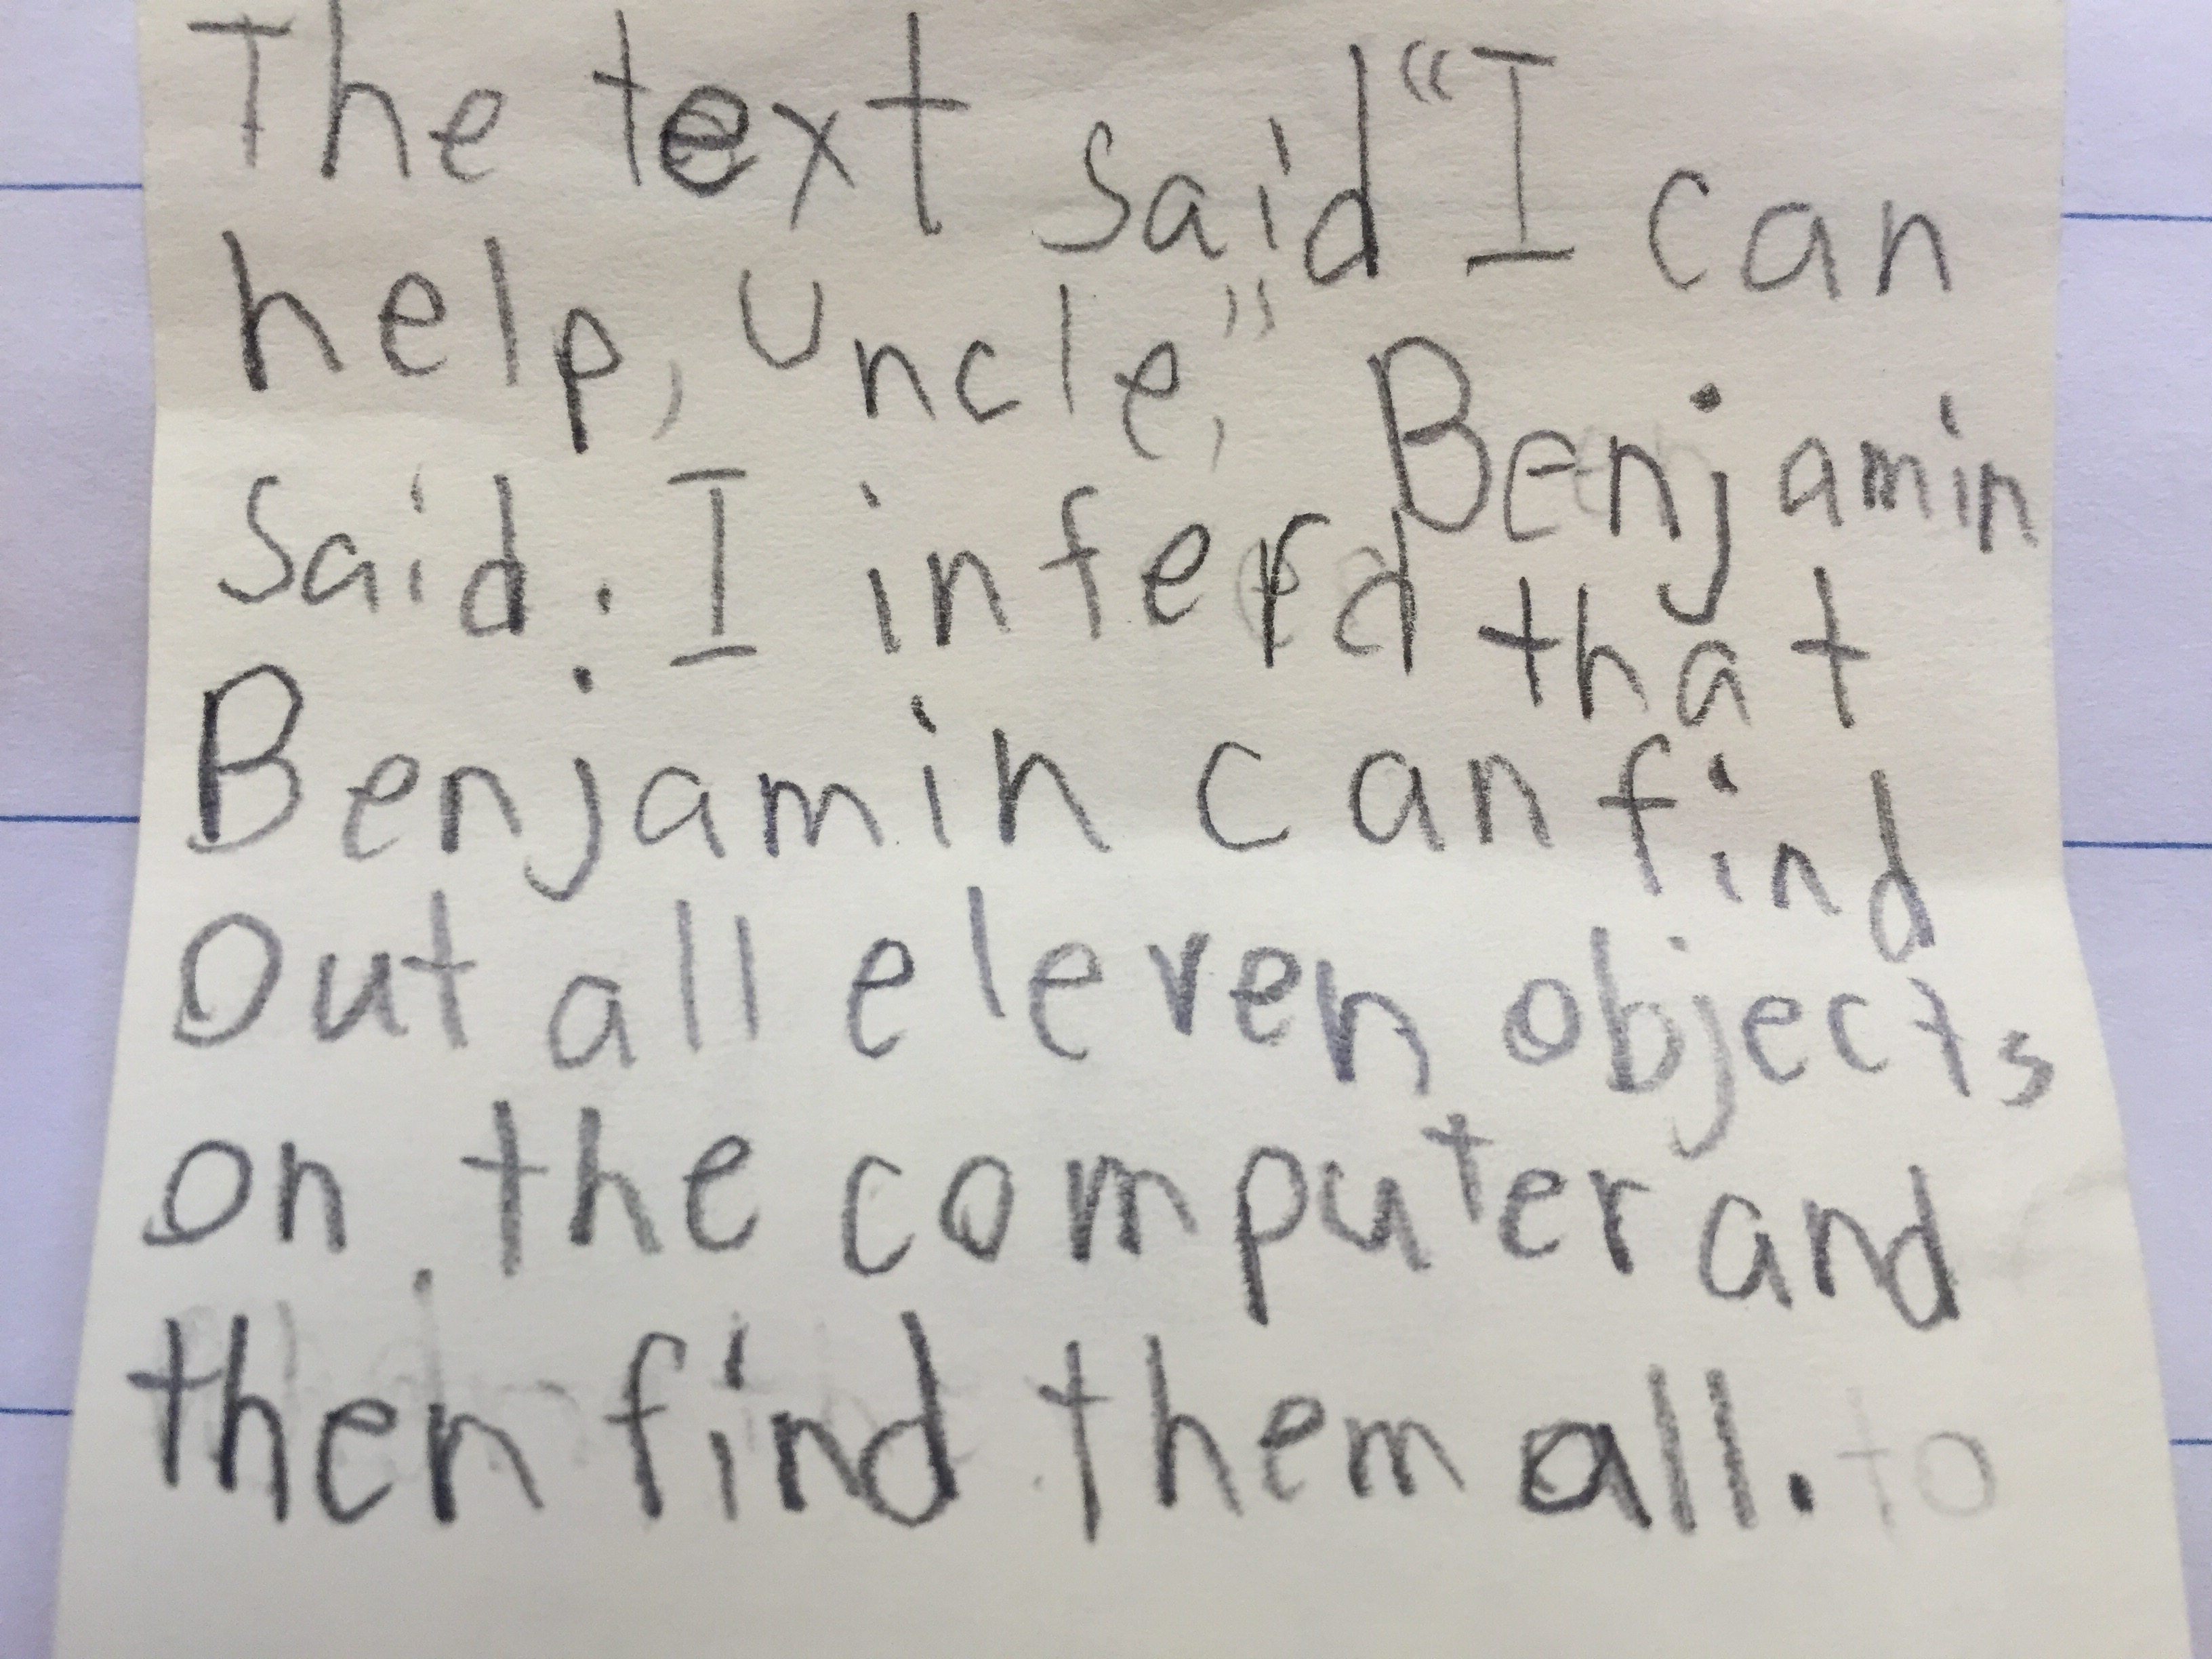 The text said "I can
help, Uncle," Benjamin
said. I inferd that
Benjamin can find
out all eleven objects
on the computer and
then find them all. to